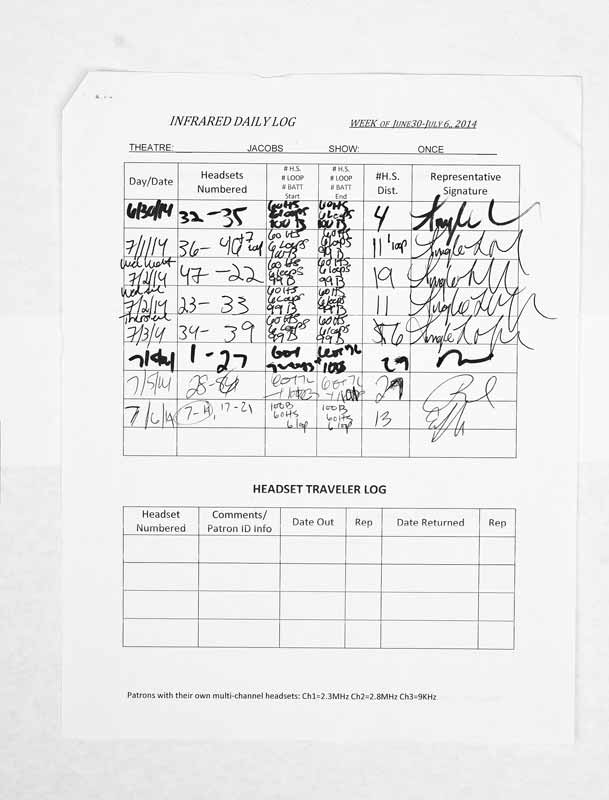 INFRARED DAILY LOG WEEK OF JUNE30-JULY 6, 2014
THEATRE: JACOBS SHOW: ONCE
Day/Date Headsets Numbered # H.S. # LOOP # BATT Start # H.S. # LOOP # BATT End #H.S. Dist. Representative Signature
6/30/14 32-35 60HS 6 Loops 100 B 60HS 6 Loops 100 B 4
7/1/14 36-40 60 HS 6 Loops 100 B 60 HS 6 Loops 99 B 11 1 loop
7/2/14 47-22 60 HS 6 Loops 99 B 60 HS 6 loops 99 B 19
7/2/14 23-33 60 HS 6 Loops 99 B 60 HS 6 Loops 99 B 11
7/3/14 34-39 60 HS 6 Loops 99 B 60 HS 6 Loops 99B 6
1-27 27
7/5/14 28-
7/6/14 7-14, 17-21 100B 60HS 6 loop 100B 60HS 6 loop 13
HEADSET TRAVELER LOG
Headset Numbered Comments/ Patron ID Info Date Out Rep Date Returned Rep
Patrons with their own multi-channel headsets: Ch1=2.3MHz Ch2=2.8MHz Ch3=9KHz